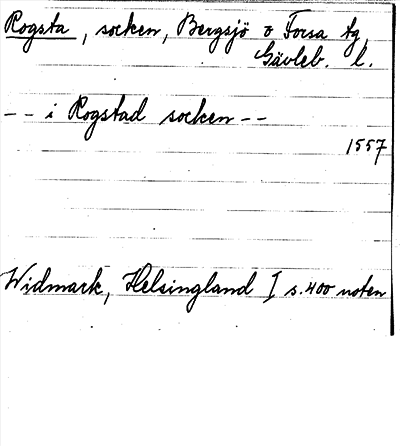 Rogsta, socken, Bergsjö o Forsa tg,
Gävleb. l.
-- i Rogstad socken --
1557
Widmark, Helsingland I s. 400 noten